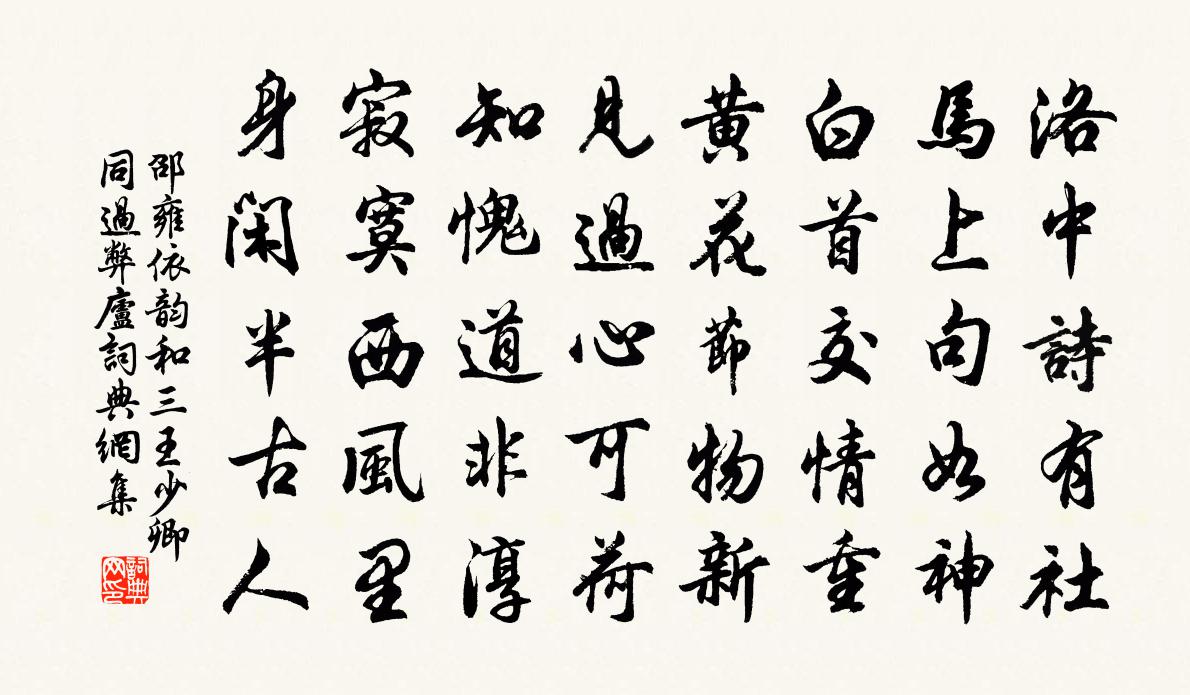 洛中詩有社
馬上句如神
白首交情重
黃花節物新
見過心可荷
知愧道非淳
寂寞西風里
身閑半古人
邵雍依韵和三王少卿
同過弊廬詞典網集
詞典网印